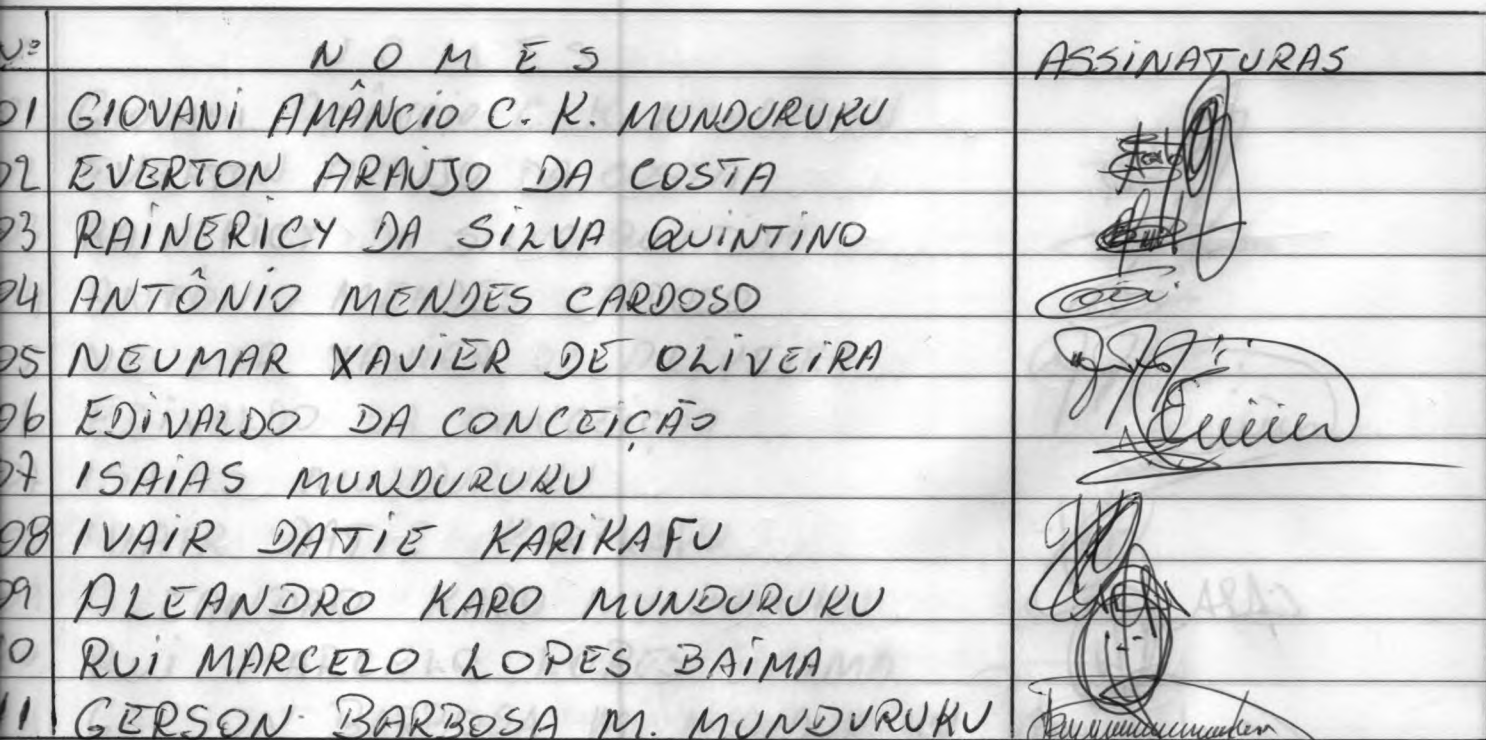 Nº NOMES ASSINATURAS
01 GIOVANI AMÂNCIO C. K. MUNDURUKU
02 EVERTON ARAUJO DA COSTA
03 RAINERICY DA SILVA QUINTINO
04 ANTÔNIO MENDES CARDOSO
05 NEUMAR XAVIER DE OLIVEIRA
06 EDIVALDO DA CONCEIÇÃO
07 ISAIAS MUNDURUKU
08 IVAIR DATIE KARIKAFU
09 ALEANDRO KARO MUNDURUKU
10 RUI MARCELO LOPES BAIMA
11 GERSON BARBOSA M. MUNDURUKU